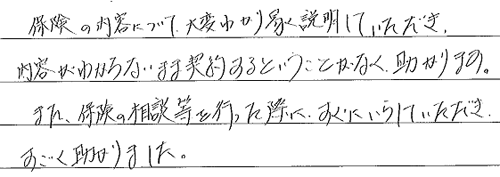 保険の内容について、大変わかり易く説明していただき、
内容がわからないまま契約するということがなく、助かります。
また、保険の相談等を行った際に、すぐにいらしていただき、
すごく助かりました。